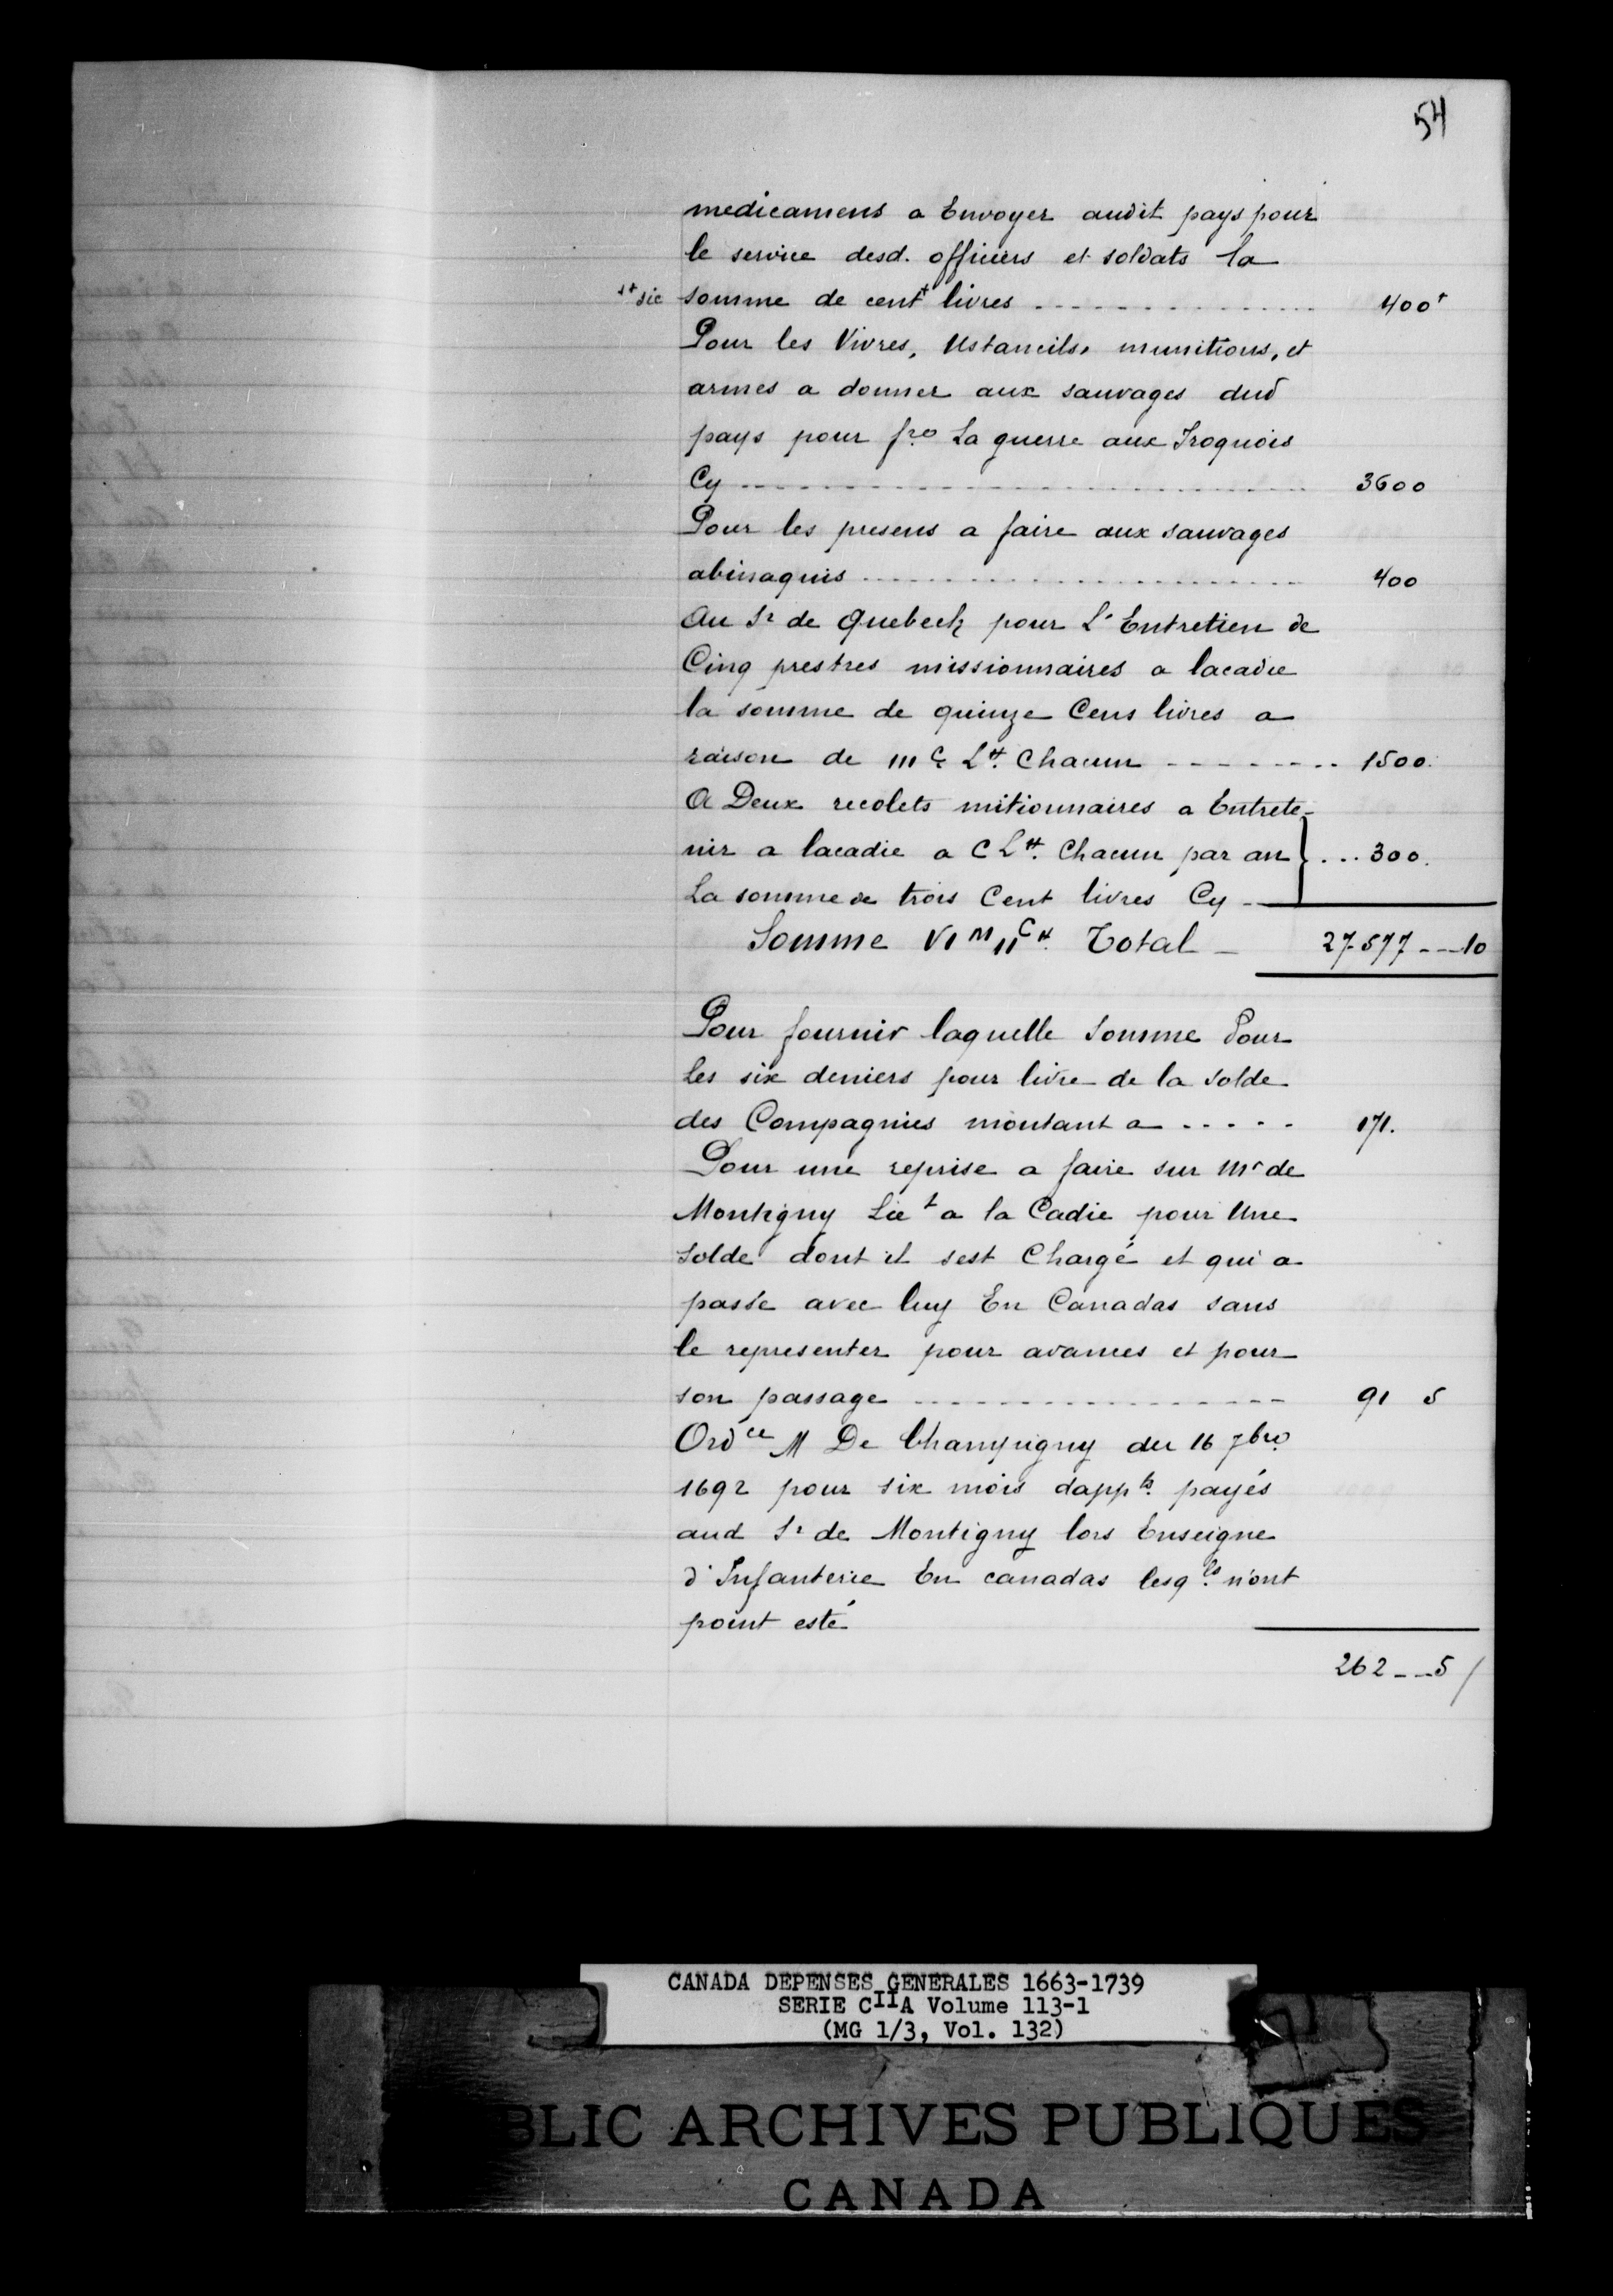 54
medicamens a Envoyer audit pays pour
le service desd. officiers et soldats la
+ sic somme de cent + livres ............... 400+
Pour les Vivres, Ustancils, munitions, et
armes a donner aux sauvages dud
pays pour fre La guerre aux Iroquois
Cy ............... 3600
Pour les presens a faire aux sauvages
abinaquis ............... 400
Au Sr de Quebeck pour L'Entretien de
Cinq prestres missionnaires a lacadie
la somme de quinze Cens livres a
raison de III C L# Chacun -------- 1500.
A Deux recolets mitionnaires a Entrete-
nir a lacadie a C L# Chacun par an } ... 300.
La somme de trois Cent livres Cy -
Somme VI M II C # Total - 27577 --- 10
Pour fournir laquelle Somme Pour
Les six deniers pour livre de la solde
des Compagnies montant a ..... 171.
Pour une reprise a faire sur Mr de
Montigny Liet a la Cadie pour Une
solde dont il sest Chargé et qui a
passé avec luy En Canadas sans
le representer pour avances et pour
son passage --------------- 91 5
Ordce M De Champigny du 16 7bre
1692 pour six mois dappts payés
aud Sr de Montigny lors Enseigne
d'Infanterie En canadas lesqls n'ont
point esté
262 -- 5 /
CANADA DEPENSES GENERALES 1663-1739
SERIE CIIA Volume 113-1
(MG 1/3, Vol. 132)
BLIC ARCHIVES PUBLIQUES
CANADA